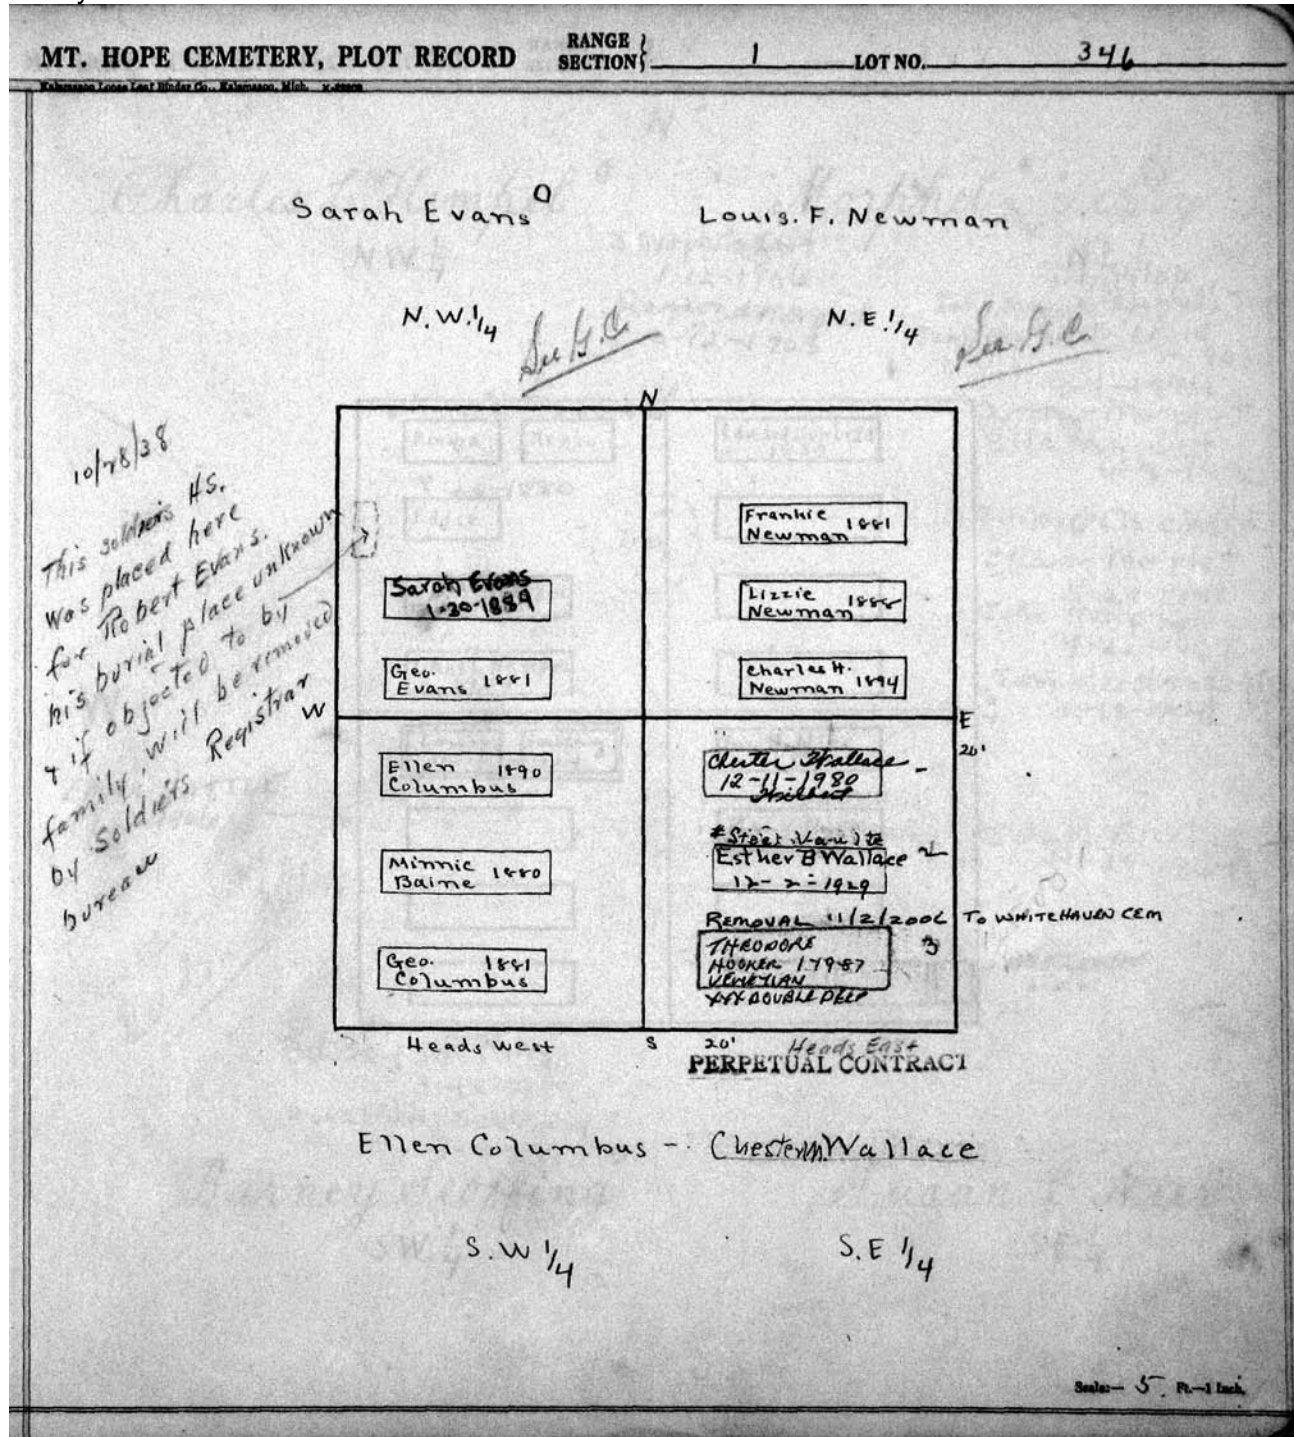 MT. HOPE CEMETERY, PLOT RECORD
RANGE
SECTION
1
LOT NO.
346
Kalamazoo Loose Leaf Binder Co., Kalamazoo, Mich.
Sarah Evans
Louis. F. Newman
N.W. 1/4
See G.C.
N.E. 1/4
See G.C.
N
10/28/38
This soldiers HS.
was placed here
for Robert Evans.
his burial place unknown
& if objected to by
family, will be removed
by Soldiers Registrar
bureau
Frankie 1881
Newman
Sarah Evans
1-30-1889
Lizzie 1888
Newman
Geo. 1881
Evans
Charles H.
Newman 1894
W
E
20'
Ellen 1890
Columbus
Chester Wallace -
12-11-1980
Minnie 1880
Baine
Esther B Wallace 2
12-2-1929
REMOVAL 11/2/2006 TO WHITEHAVEN CEM
Geo. 1881
Columbus
THEODORE 3
HOOKER
VENETIAN
XXX DOUBLE DEEP
Heads West
S
20'
Heads East
PERPETUAL CONTRACT
Ellen Columbus - Chester M. Wallace
S.W 1/4
S.E 1/4
Scale:— 5 Ft.—1 Inch.